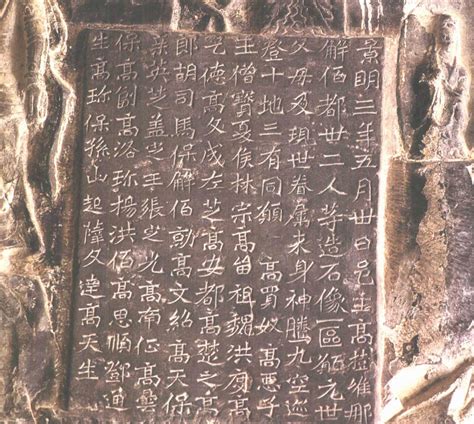 景明三年五月卅日邑主高樹維那
解佰都卅二人等造石像一區願元世
父母及現世眷屬来身神騰九空迊
登十地三有同願 高買奴 高惡子
王僧寶夏侯林宗高留祖魏洪度高
乞德高文成左芝高安都高楚之高
郎胡司馬保解佰勍高文紹高天保
英芝盖之王張之光高南征高曇
保高創高洛珎楊洪佰高思順鄧通
生高珎保孫山起文達高天生